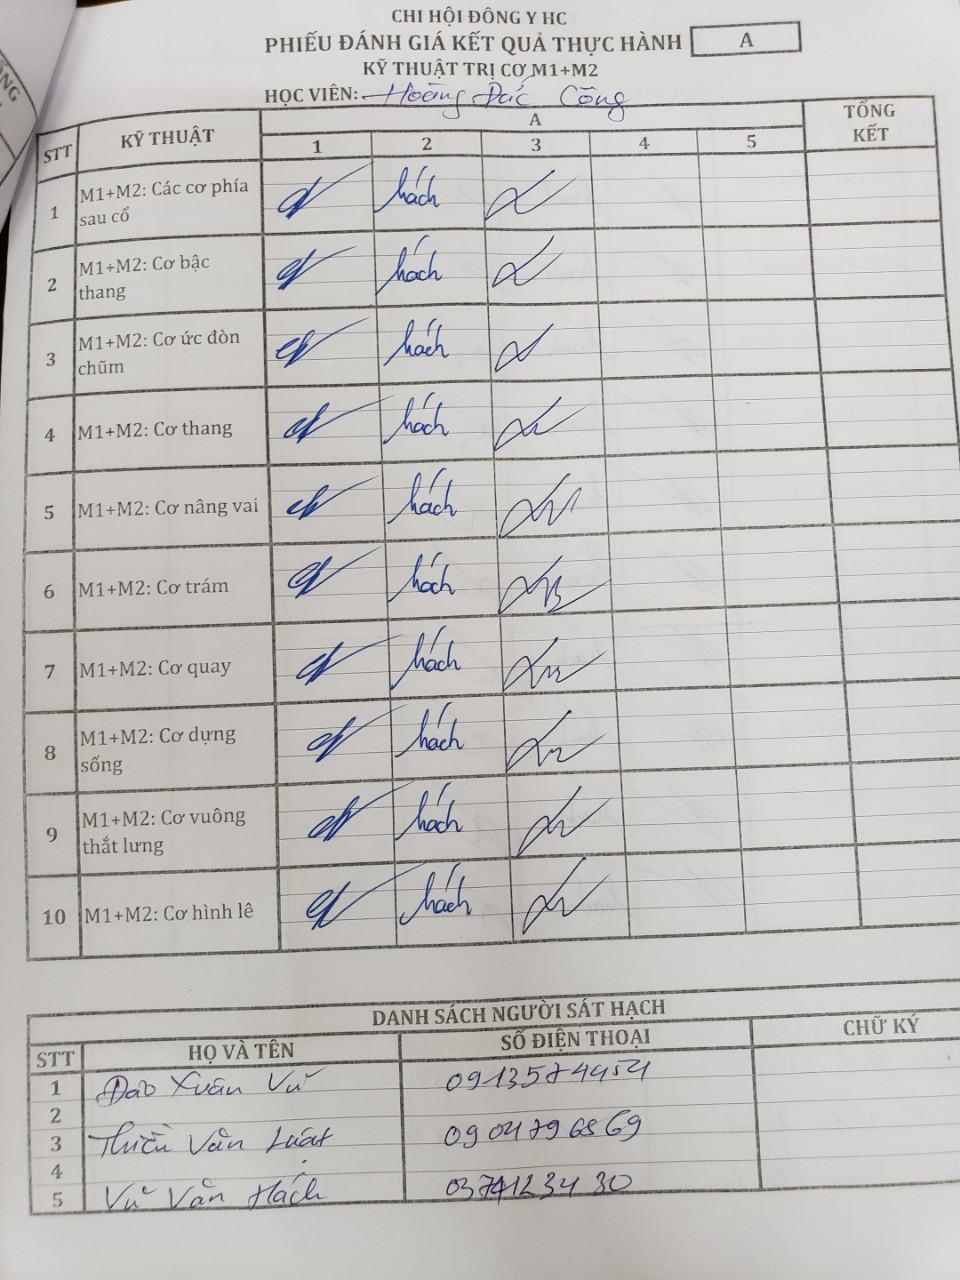 CHI HỘI ĐÔNG Y HC
PHIẾU ĐÁNH GIÁ KẾT QUẢ THỰC HÀNH A
KỸ THUẬT TRỊ CƠ M1+M2
HỌC VIÊN: Hoàng Đắc Công
STT KỸ THUẬT A TỔNG KẾT
1 2 3 4 5
1 M1+M2: Các cơ phía sau cổ hách
2 M1+M2: Cơ bậc thang hách
3 M1+M2: Cơ ức đòn chũm hách
4 M1+M2: Cơ thang hách
5 M1+M2: Cơ nâng vai hách
6 M1+M2: Cơ trám hách
7 M1+M2: Cơ quay hách
8 M1+M2: Cơ dựng sống hách
9 M1+M2: Cơ vuông thắt lưng hách
10 M1+M2: Cơ hình lê hách
DANH SÁCH NGƯỜI SÁT HẠCH
STT HỌ VÀ TÊN SỐ ĐIỆN THOẠI CHỮ KÝ
1 Đào Xuân Vũ 0913574454
2
3 Thiều Văn Luật 0904796869
4
5 Vũ Văn Hách 0374123430